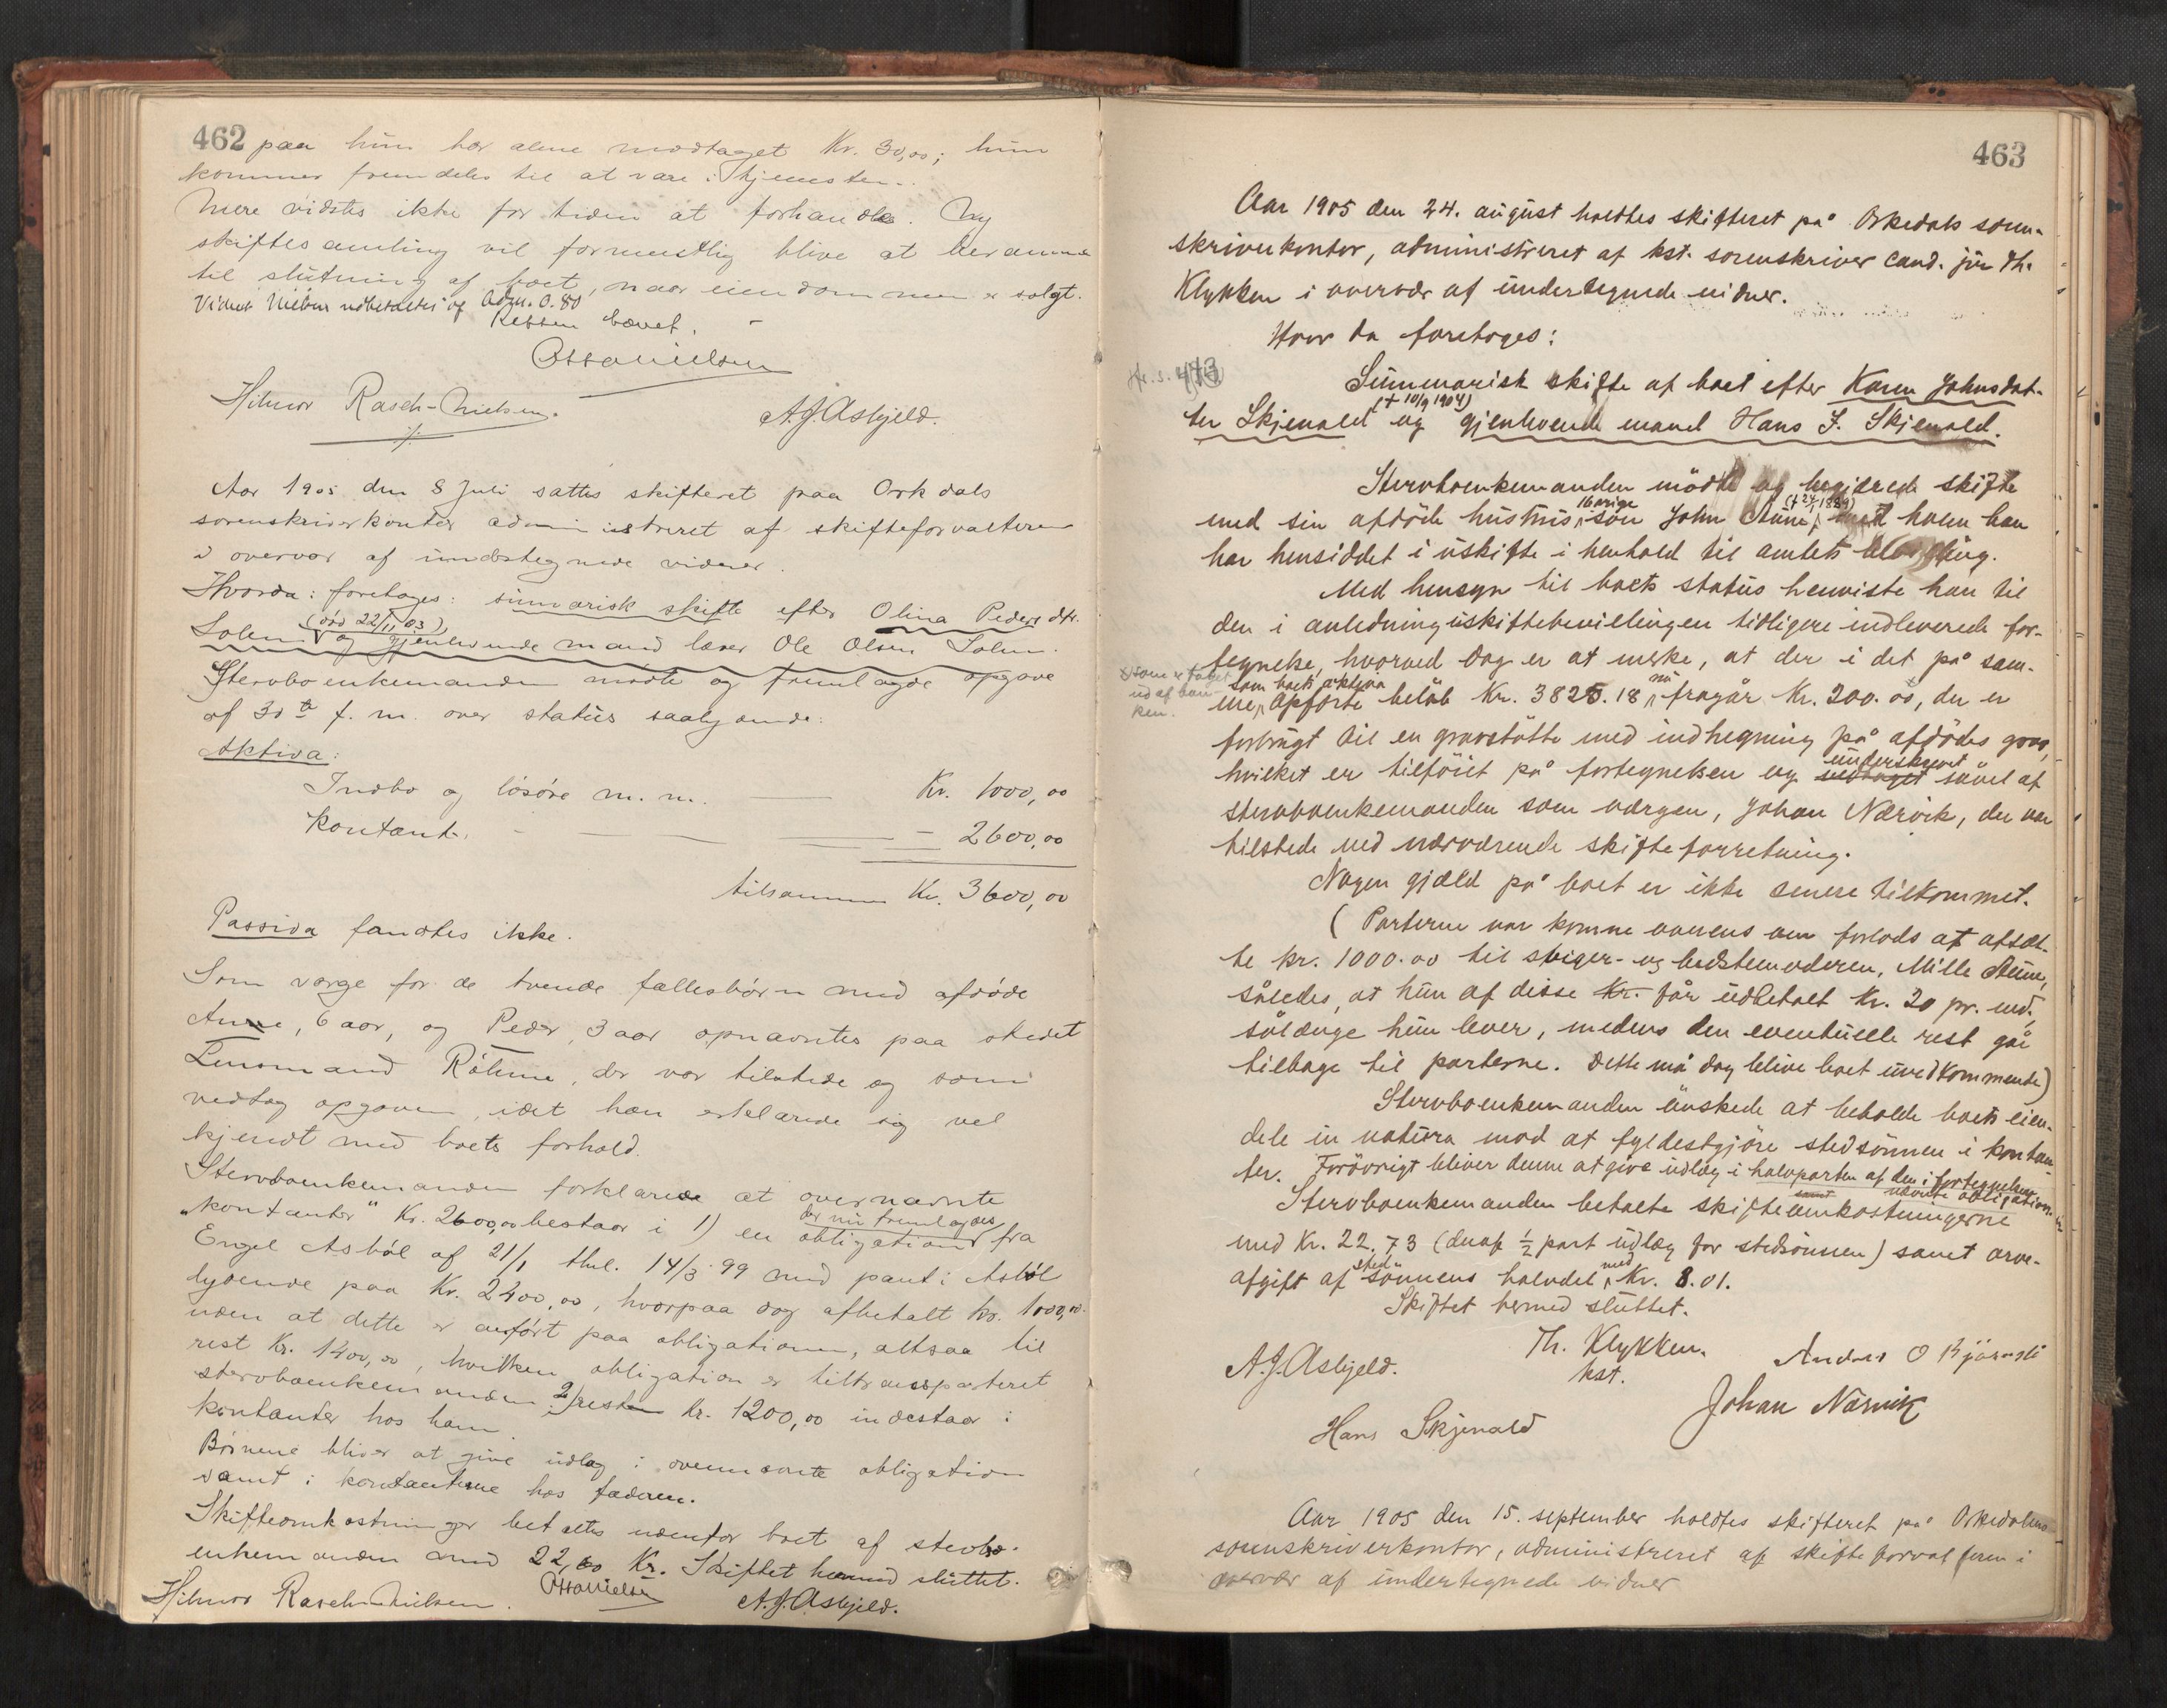 462 paa hun har alene modtaget Kr. 30,00; hun
kommer fremdeles til at være i tjenesten.
Mere vidstes ikke for tiden at forhandle. Ny
skiftesamling vil formentlig blive at beramme
til slutning af boet, naar eiendommen er solgt.
Vidnet Nielsen udbetaltes af Adm. 0.80
Retten hævet.
Otto Nielsen
Hilmor Rasch-Nielsen. A. J. Asbjeld.
Aar 1905 den 8 Juli sattes skifteret paa Orkdals
sorenskriverkontor administreret af skifteforvalteren
i overvær af undertegnede vidner.
Hvorda: foretages: sumarisk skifte efter Olina Peders dtr.
(død 22/11 03)
Solem og gjenlevende mand lærer Ole Olsen Solem.
Stervboenkemanden mødte og fremlagde opgave
af 30te f. m. over status saalydende:
Aktiva:
Indbo og løsøre m. m. Kr. 1000,00
Kontant. - 2600,00
tilsammen Kr. 3600,00
Passiva fandtes ikke.
Som værge for de tvende fællesbørn med afdøde
Anne, 6 aar, og Peder, 3 aar opnævntes paa stedet
Lensmand Röhme, der var tilstede og som
vedtog opgaven, idet han erklærede sig vel
kjendt med boets forhold.
Stervboenkemanden forklarede at overnævnte
"kontanter" Kr. 2600,00 bestaar i 1) en obligation der nu fremlagdes fra
Engel Asbøl af 21/1 thl. 14/3 99 med pant i Asbøl
lydende paa Kr. 2400,00, hvorpaa dog afbetalt kr. 1000,00.
uden at dette er anført paa obligationen, altsaa til
rest Kr. 1400,00, hvilken obligation er tiltransporteret
stervboenkemanden 2) resten Kr. 1200,00 indestaar i
kontanter hos ham.
Børnene bliver at give udlæg i ovennævnte obligation
samt i kontanterne hos faderen.
Skifteomkostninger betaltes udenfor boet af stervbo-
enkemanden med 22,60 Kr. Skiftet hermed sluttet.
Hilmor Rasch-Nielsen. Otto Nielsen A. J. Asbjeld.
463
Aar 1905 den 24. august holdtes skifteret på Orkedals soren-
skriverkontor, administreret af kst. sorenskriver cand. jur Th.
Klykken i overvær af undertegnede vidner.
Hvor da foretoges:
Jfr. s. 473
Summarisk skifte af boet efter Karen Johnsdat-
(+ 10/9 1904)
ter Skjenald og gjenlevende mand Hans J. Skjenald.
Stervboenkemanden mødte og begjærede skifte
med sin afdøde hustrus 16 årige søn John Aune, med hvem han
har hensiddet i uskifte i henhold til amtets bevilling.
Med hensyn til boets status henviste han til
den i anledning uskiftebevillingen tidligere indleverede for-
tegnelse, hvorved dog er at merke, at der i det på sam-
me, som boets aktiva opførte beløb Kr. 3825.18 nu fragår Kr. 200.00, der er
x som er taget ud af banken.
forbrugt til en gravstøtte med indhegning på afdødes grav,
hvilket er tilføiet på fortegnelsen og vedtaget underskrevet såvel af
stervboenkemanden som værgen, Johan Nærvik, der var
tilstede ved nærværende skifteforretning.
Nogen gjæld på boet er ikke senere tilkommet.
(Parterne var komne overens om forlods at afsæt-
te kr. 1000.00 til sviger- og bedstemoderen, Mille Aune,
således, at hun af disse Kr. får udbetalt Kr. 20 pr. md.
sålænge hun lever, medens den eventuelle rest går
tilbage til parterne. Dette må dog blive boet uvedkommende)
Stervboenkemanden ønskede at beholde boets eien-
dele in natura mod at fyldestgjøre stedsønnen i kontan-
ter. Forøvrigt bliver denne at give udlæg i halvparten af den i fortegnelsen
nævnte obligation.
Stervboenkemanden betalte skifteomkostningerne
med Kr. 22.73 (deraf 1/2 part udlæg for stedsønnen) samt arve-
afgift af stedsønnens halvdel med Kr. 8.01.
Skiftet hermed sluttet.
A. J. Asbjeld. Th. Klykken. kst. Anders O Bjørnli
Hans Skjenald Johan Nærvik
Aar 1905 den 15. september holdtes skifteret på Orkedalens
sorenskriverkontor, administreret af skifteforvalteren i
overvær af undertegnede vidner